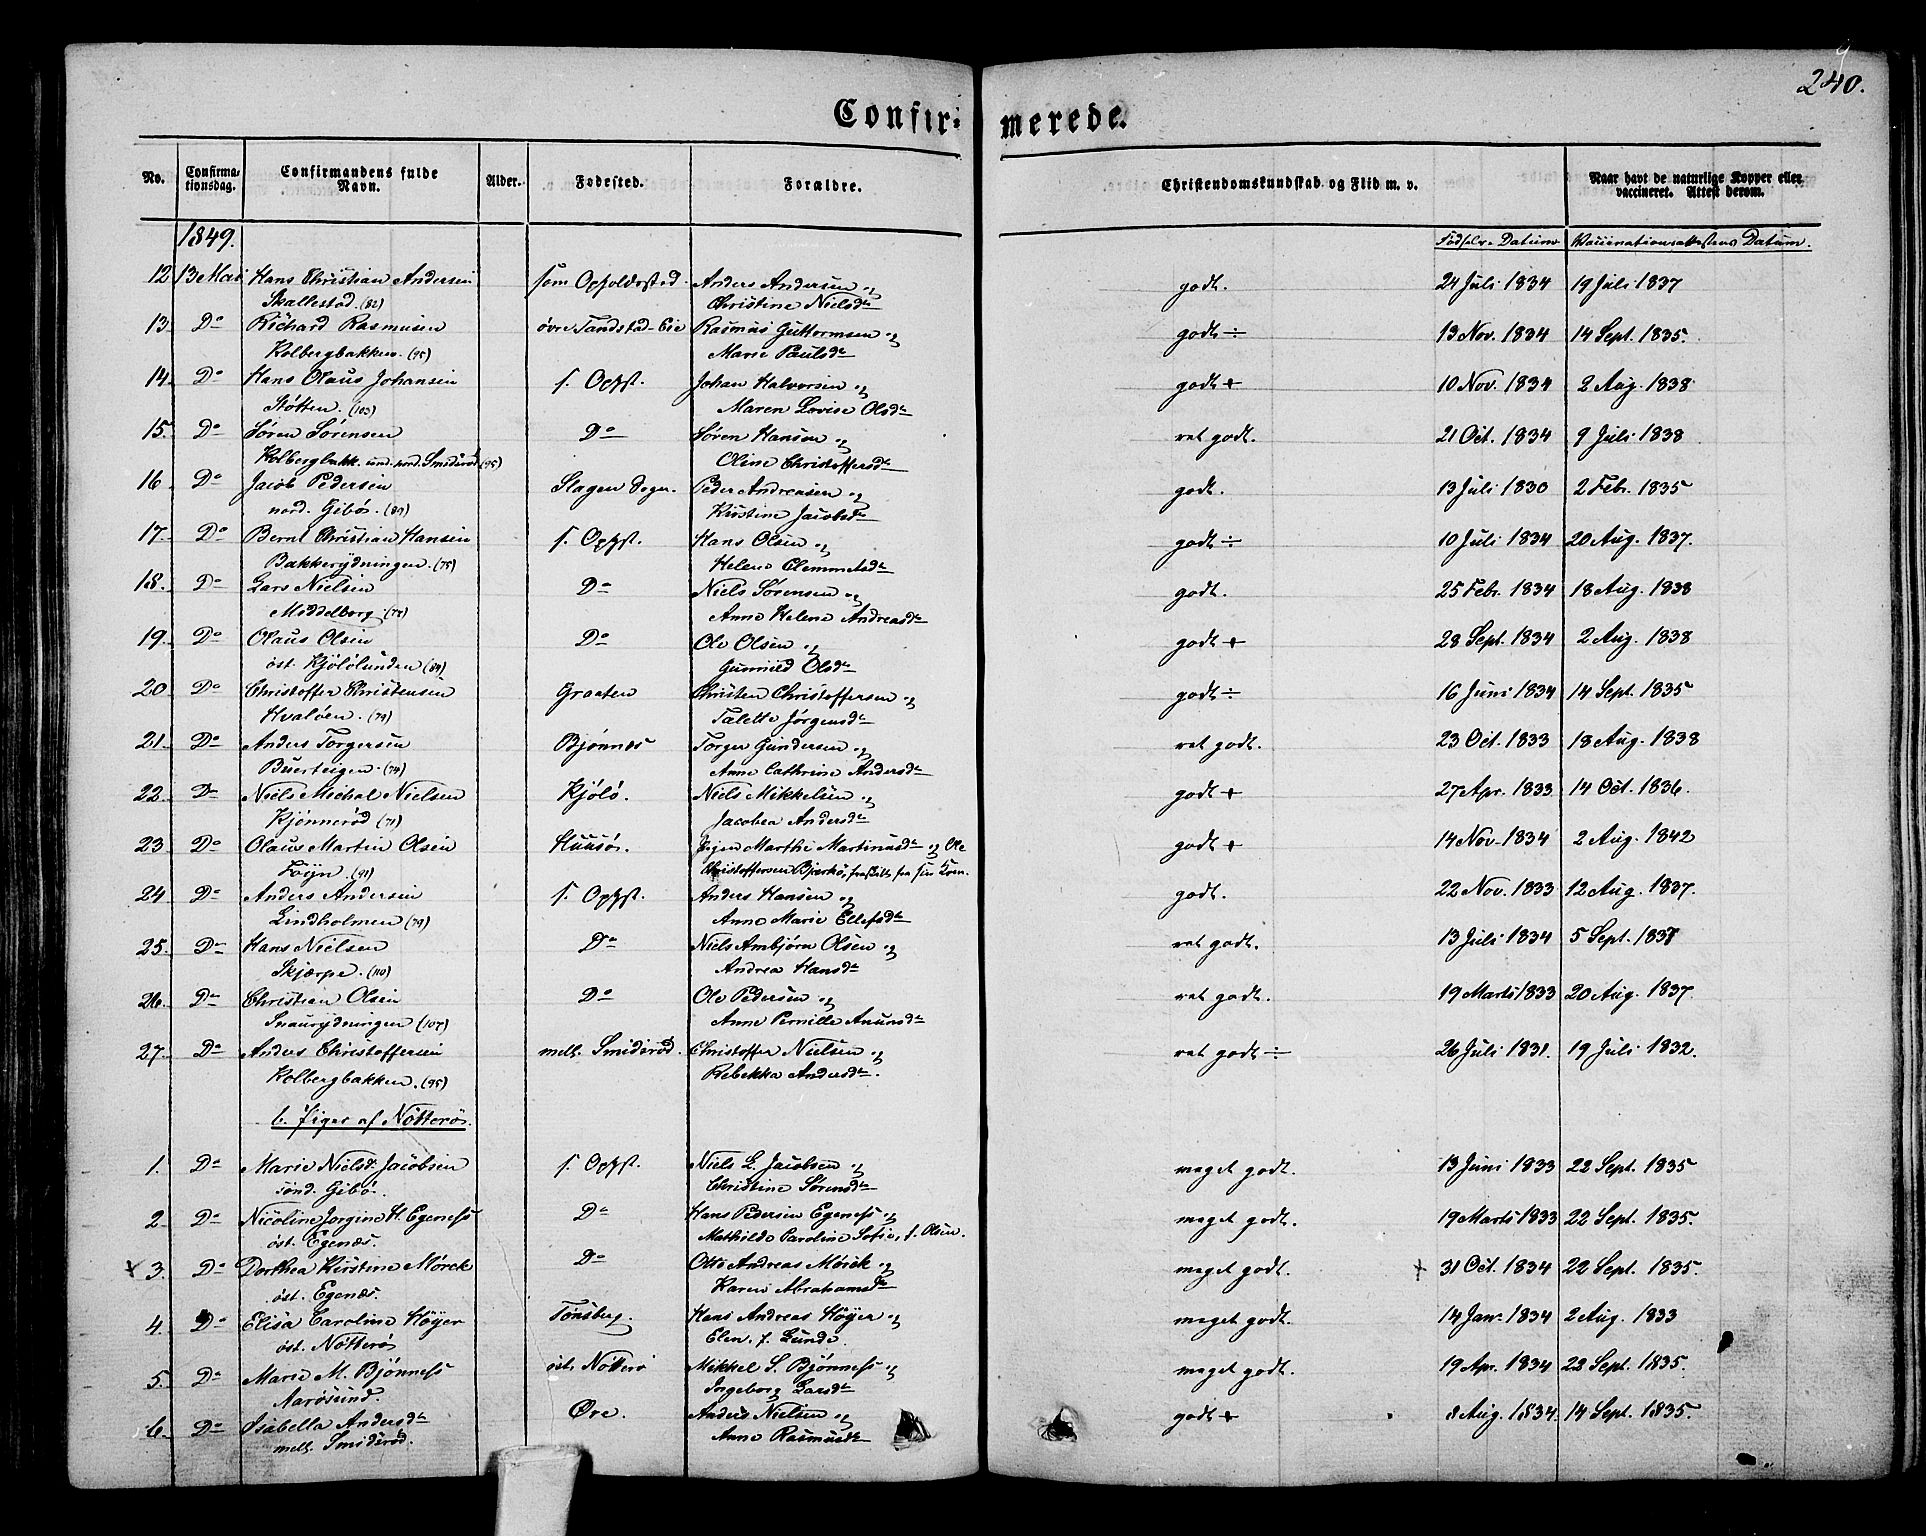 240.
Confir- merede.
No. Confirmationsdag. Confirmandens fulde Navn. Alder. Fødested. Forældre. Christendomskundskab og Flid m. v. Naar havt de naturlige Kopper eller vaccineret. Attest derom.
1849. Fødsels-Datum Vaccinationsattestens Datum.
12 13 Mai Hans Christian Andersen som Opholdssted Anders Andersen og godt. 24 Juli 1834 19 Juli 1837
Skallestad (82) Christine Nielsdr
13. Do Richard Rasmusen øvre Tandstad-Eie Rasmus Guttormsen og godt ÷ 13 Nov. 1834 14 Sept. 1835.
Kolbergbakken. (95) Marie Paulsdr
14. Do Hans Olaus Johansen s. Opst. Johan Halvorsen og godt + 10 Nov. 1834 2 Aug. 1838.
Støtten. (103) Maren Lovise Olsdr
15. Do Søren Sørensen Do Søren Hansen og ret godt. 21 Oct. 1834 9 Juli 1838
Kolbergbakk. und. nord. Smiderød (95) Oline Christoffersdr
16 Do Jacob Pedersen Slagen Sogn. Peder Andreasen og godt. 13 Juli 1830 2 Febr. 1835
nord. Gibø. (89) Kirstine Jacobsdr
17. Do Bernt Christian Hansen s. Opst. Hans Olsen og godt ÷ 10 Juli 1834 20 Aug. 1837.
Bakkerydningen. (75) Helene Clemmetsdr
18. Do Lars Nielsen Do Niels Sørensen og godt. 25 Febr. 1834 18 Aug. 1838
Middelborg. (78) Anne Helene Andreasdr
19. Do Olaus Olsen Do Ole Olsen og godt + 28 Sept. 1834 2 Aug. 1838
øst. Kjølølunden (84) Gunnild Olsdr
20 Do Christoffer Christensen Graaten Christen Christoffersen og godt ÷ 16 Juni 1834 14 Sept. 1835
Hvaløen. (79) Talette Jørgensdr
21. Do Anders Torgersen Bjønnes Torger Gundersen og ret godt. 23 Oct. 1833 18 Aug. 1838
Buerteigen. (74) Anne Cathrine Andersdr
22. Do Niels Michal Nielsen Kjølø. Niels Mikkelsen og godt + 27 Apr. 1833 14 Oct. 1836.
Kjønnerød (71) Jacobea Andersdr
23 Do Olaus Martin Olsen Huusø. Pigen Marthe Martinusdr og Ole godt + 14 Nov. 1834 2 Aug. 1842
Føyn. (91) Christoffersen Bjerkø, fraskilt fra sin Kone.
24 Do Anders Andersen s. Opst. Anders Hansen og godt. 22 Nov. 1833 12 Aug. 1837.
Lindholmen (79) Anne Marie Ellefsdr
25. Do Hans Nielsen Do Niels Ambjørn Olsen og ret godt. 13 Juli 1834 5 Sept. 1837
Skjærpe. (110) Andrea Hansdr
26. Do Christian Olsen Do Ole Pedersen og ret godt. 19 Marts 1833 20 Aug. 1837.
Snaurydningen (107) Anne Pernille Anunsdr
27. Do Anders Christoffersen mell. Smiderød. Christoffer Nielsen og ret godt ÷ 26 Juli 1831. 19 Juli 1832.
Kolbergbakken. (95) Rebekka Andersdr.
b. Piger af Nøtterø.
1. Do Marie Nielsdr Jacobsen s. Opst. Niels L. Jacobsen og meget godt. 13 Juni 1833 22 Sept. 1835
sønd. Gibø. Christine Sørensdr
2. Do Nicoline Jørgine H. Egeness Do Hans Pedersen Egeness og meget godt. 19 Marts 1833 22 Sept. 1835.
øst. Egenæs. Mathilde Paroline Sofie, f. Olsen.
x 3. Do Dorthea Kirstine Mørck Do Otto Andreas Mørck og meget godt. x 31 Oct. 1834 22 Sept. 1835.
øst. Egenæs. Karen Abrahamsdr
4. Do Elisa Caroline Høyer Tønsberg. Hans Andreas Høyer og meget godt. 14 Janr 1834 2 Aug. 1833
øst. Nøtterø Elen, f. Lunde.
5. Do Marie M. Bjønness øst. Nøtterø Mikkel S. Bjønness og meget godt. 19 Apr. 1834 22 Sept. 1835.
Narøsund. Ingeborg Larsdr
6. Do Isabella Andersdr Øre. Anders Nielsen og godt + 8 Aug. 1834. 14 Sept. 1835.
mell. Smiderød. Anne Rasmusdr